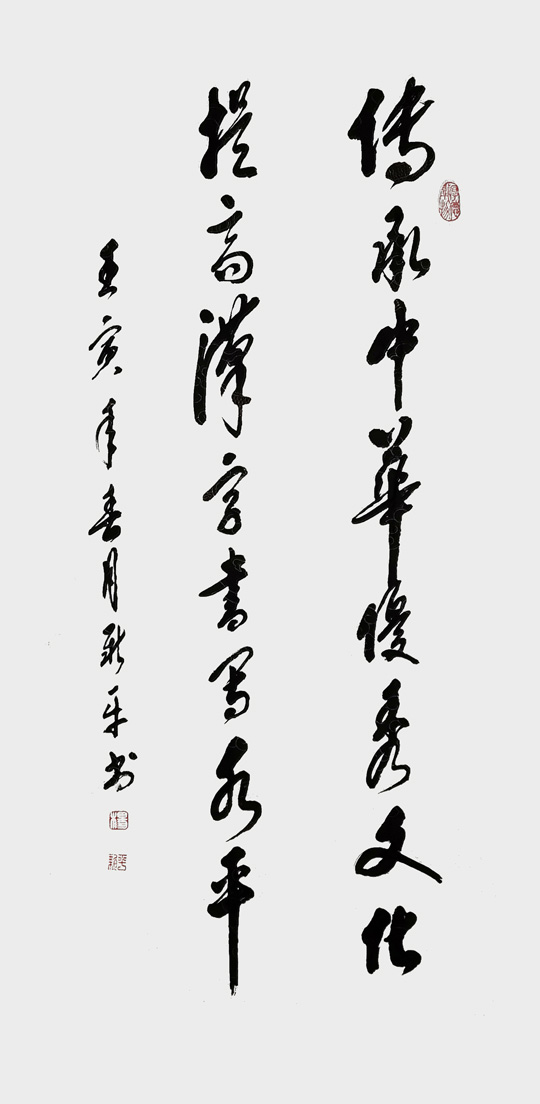 傳承中華優秀文化
提高漢字書寫水平
壬寅年春月新平書